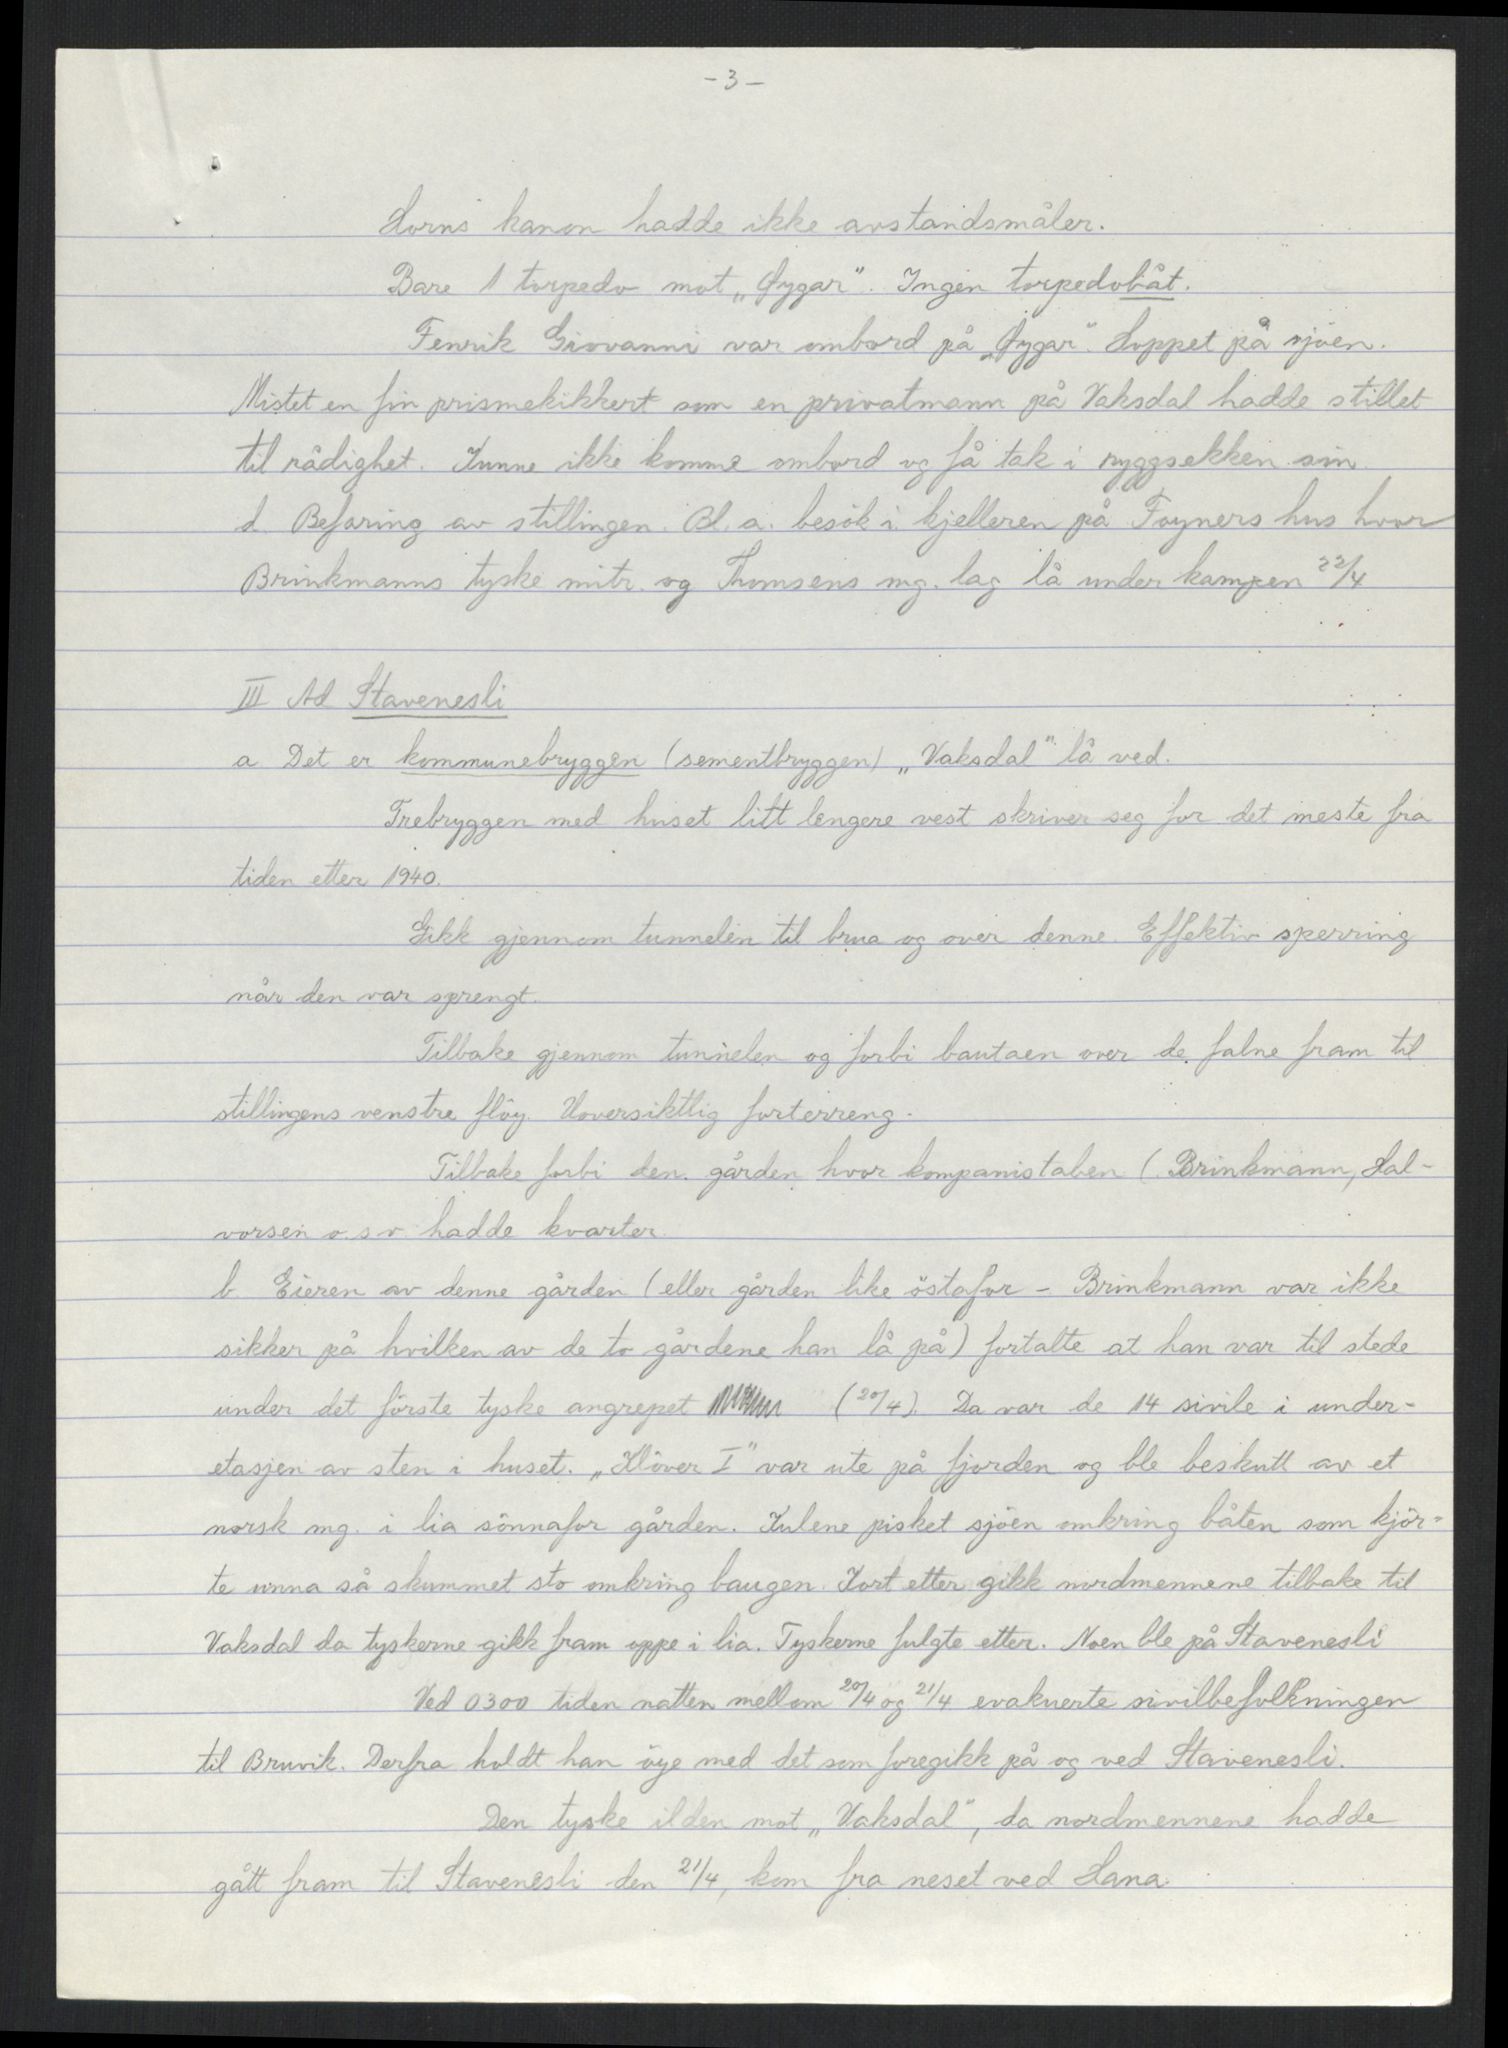 -3-
Horns kanon hadde ikke avstandsmåler.
Bare 1 torpedo mot „Öygar". Ingen torpedobåt.
Fenrik Giovanni var ombord på „Öygar". Hoppet på sjöen.
Mistet en fin prismekikkert som en privatmann på Vaksdal hadde stillet
til rådighet. Kunne ikke komme ombord og få tak i ryggsekken sin.
d. Befaring av stillingen. Bl. a. besök i kjelleren på Foyners hus hvor
Brinkmanns tyske mitr. og Thomsens mg. lag lå under kampen 22/4
III Ad Stavenesli
a Det er kommunebryggen (sementbryggen) „Vaksdal" lå ved.
Trebryggen med huset litt lengere vest skriver seg for det meste fra
tiden etter 1940.
Gikk gjennom tunnelen til brua og over denne. Effektiv sperring
når den var sprengt.
Tilbake gjennom tunnelen og forbi bautaen over de falne fram til
stillingens venstre flöy. Uoversiktlig forterreng.
Tilbake forbi den gården hvor kompanistaben (Brinkmann, Hal-
vorsen o.s.v. hadde kvarter.
b. Eieren av denne gården (eller gården like östafor - Brinkmann var ikke
sikker på hvilken av de to gårdene han lå på) fortalte at han var til stede
under det förste tyske angrepet (20/4). Da var de 14 sivile i under-
etasjen av sten i huset. „Klöver I" var ute på fjorden og ble beskutt av et
norsk mg. i lia sönnafor gården. Kulene pisket sjöen omkring båten som kjör-
te unna så skummet sto omkring baugen. Kort etter gikk nordmennene tilbake til
Vaksdal da tyskerne gikk fram oppe i lia. Tyskerne fulgte etter. Noen ble på Stavenesli
Ved 0300 tiden natten mellom 20/4 og 21/4 evakuerte sivilbefolkningen
til Bruvik. Derfra holdt han öye med det som foregikk på og ved Stavenesli.
Den tyske ilden mot „Vaksdal", da nordmennene hadde
gått fram til Stavenesli den 21/4, kom fra neset ved Hana.